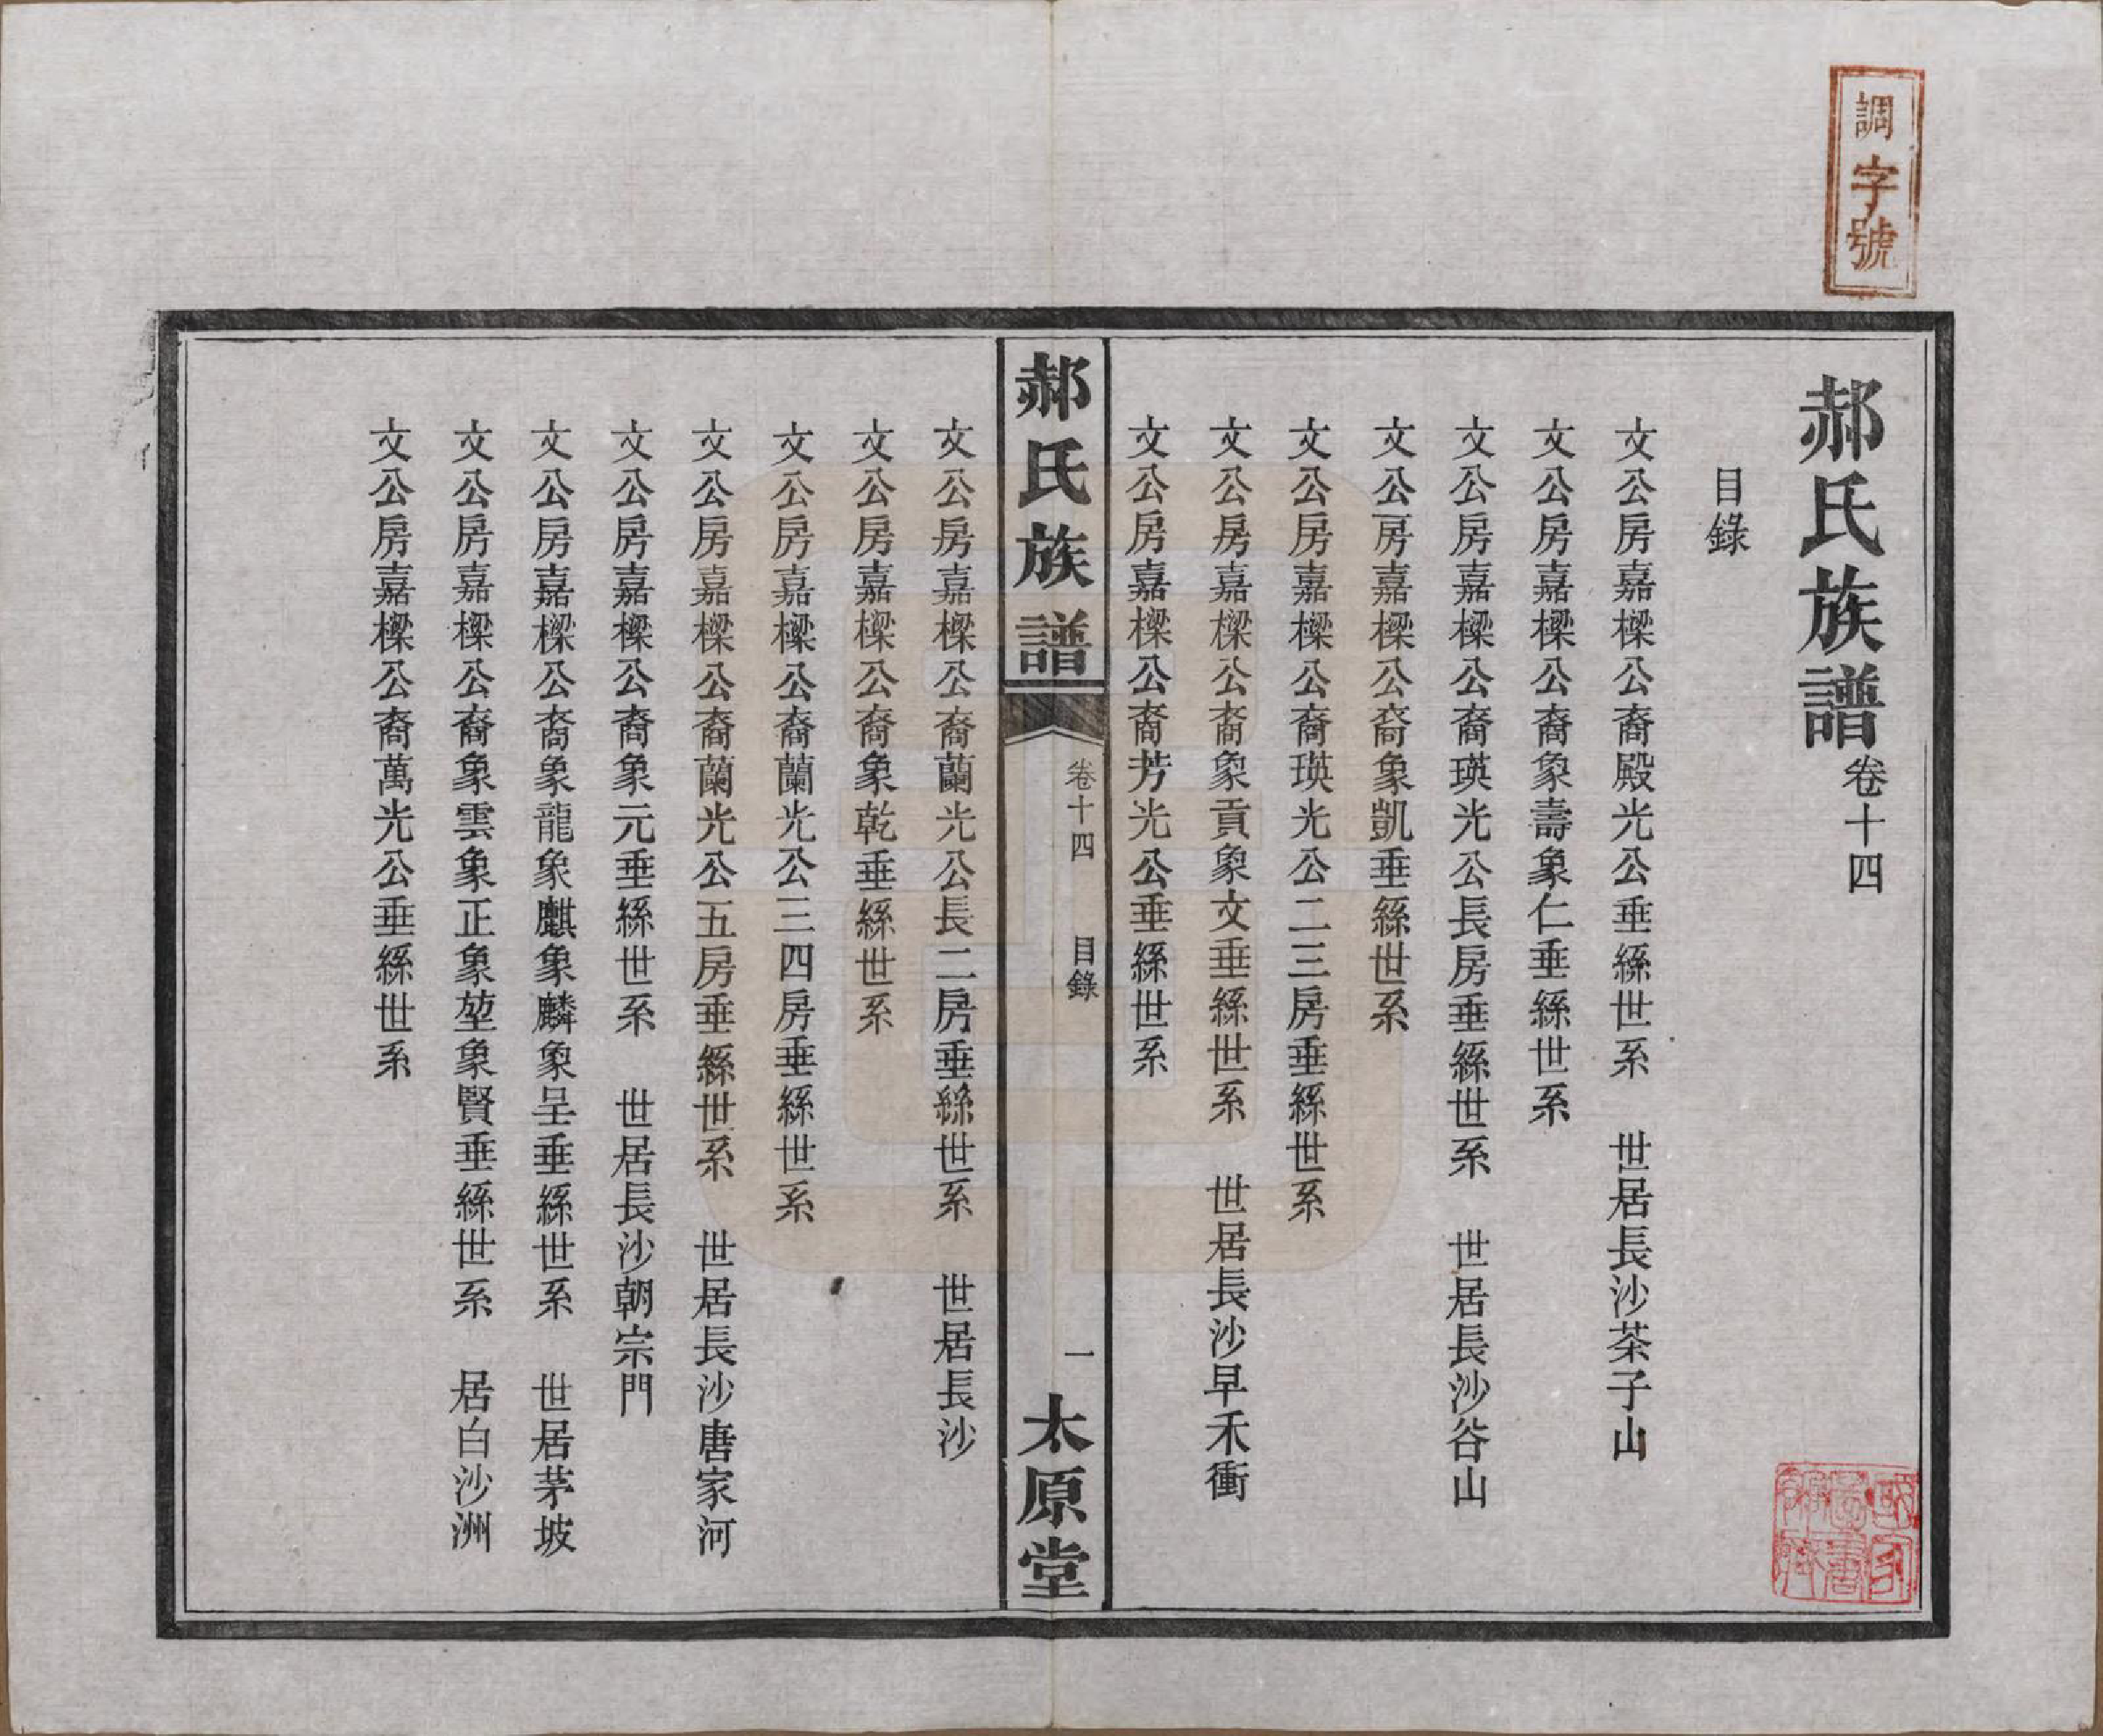 調字號
郝氏族譜卷十四
目錄
文公房嘉樑公裔殿光公垂絲世系　世居長沙茶子山
文公房嘉樑公裔象壽象仁垂絲世系
文公房嘉樑公裔瑛光公長房垂絲世系　世居長沙谷山
文公房嘉樑公裔象凱垂絲世系
文公房嘉樑公裔瑛光公二三房垂絲世系
文公房嘉樑公裔象貢象文垂絲世系　世居長沙早禾衝
文公房嘉樑公裔芳光公垂絲世系
郝氏族譜　卷十四　目錄　一　太原堂
文公房嘉樑公裔蘭光公長二房垂絲世系　世居長沙
文公房嘉樑公裔象乾垂絲世系
文公房嘉樑公裔蘭光公三四房垂絲世系
文公房嘉樑公裔蘭光公五房垂絲世系　世居長沙唐家河
文公房嘉樑公裔象元垂絲世系　世居長沙朝宗門
文公房嘉樑公裔象龍象麒象麟象呈垂絲世系　世居茅坡
文公房嘉樑公裔象雲象正象堃象賢垂絲世系　居白沙洲
文公房嘉樑公裔萬光公垂絲世系